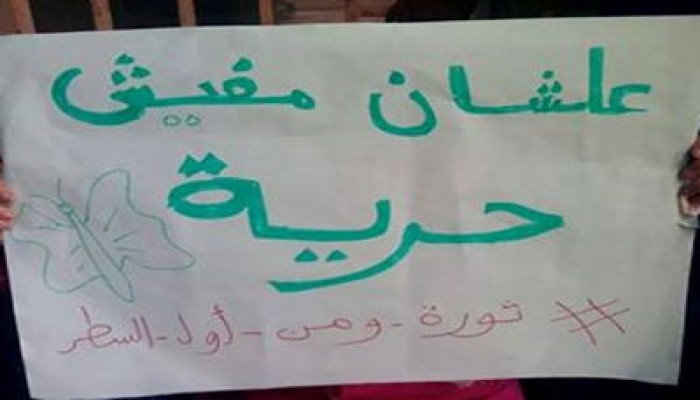 علشان مفيش
حرية
# ثورة - ومن - أول - السطر